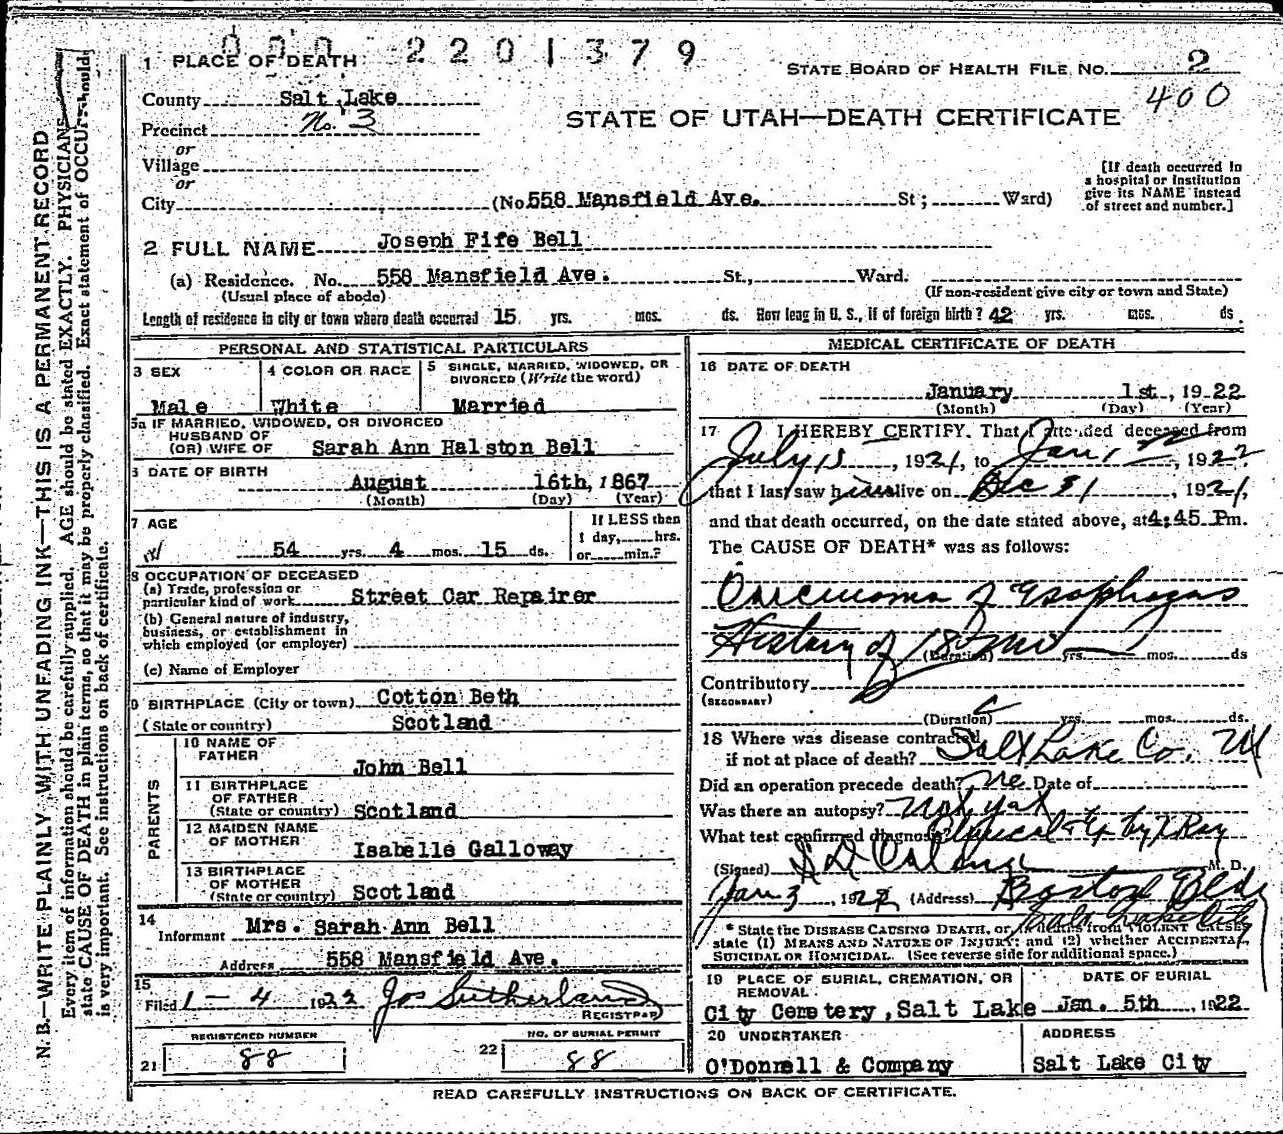 000 2201379
1 PLACE OF DEATH
STATE BOARD OF HEALTH FILE NO. 2
400
County Salt Lake
Precinct No. 3
STATE OF UTAH—DEATH CERTIFICATE
or
Village
or
City (No. 558 Mansfield Ave. St; Ward)
[If death occurred in
a hospital or institution
give its NAME instead
of street and number.]
2 FULL NAME Joseph Fife Bell
(a) Residence. No. 558 Mansfield Ave. St., Ward.
(Usual place of abode)
(If non-resident give city or town and State)
Length of residence in city or town where death occurred 15 yrs. mos. ds. How long in U. S., if of foreign birth? 42 yrs. mos. ds.
PERSONAL AND STATISTICAL PARTICULARS
3 SEX
Male
4 COLOR OR RACE
White
5 SINGLE, MARRIED, WIDOWED, OR
DIVORCED (Write the word)
Married
5a IF MARRIED, WIDOWED, OR DIVORCED
HUSBAND OF
(OR) WIFE OF Sarah Ann Halston Bell
6 DATE OF BIRTH
August 16th, 1867
(Month) (Day) (Year)
7 AGE
54 yrs. 4 mos. 15 ds.
If LESS then
1 day, hrs.
or min.?
8 OCCUPATION OF DECEASED
(a) Trade, profession or
particular kind of work Street Car Repairer
(b) General nature of industry,
business, or establishment in
which employed (or employer)
(c) Name of Employer
9 BIRTHPLACE (City or town) Cotton Beth
(State or country) Scotland
PARENTS
10 NAME OF
FATHER John Bell
11 BIRTHPLACE
OF FATHER
(State or country) Scotland
12 MAIDEN NAME
OF MOTHER Isabelle Galloway
13 BIRTHPLACE
OF MOTHER
(State or country) Scotland
14
Informant Mrs. Sarah Ann Bell
Address 558 Mansfield Ave.
15
Filed 1-4 1922 Jos Sutherland
REGISTRAR
REGISTERED NUMBER
21 88
NO. OF BURIAL PERMIT
22 88
MEDICAL CERTIFICATE OF DEATH
16 DATE OF DEATH
January 1st, 1922
(Month) (Day) (Year)
17 I HEREBY CERTIFY. That I attended deceased from
July 15, 1921, to Jan, 1922
that I last saw him alive on Dec 31, 1921,
and that death occurred, on the date stated above, at 4:45 Pm.
The CAUSE OF DEATH* was as follows:
Carcinoma of Esophogas
History of 18 mo
(Duration) yrs. mos. ds
Contributory
(SECONDARY)
(Duration) yrs. mos. ds.
18 Where was disease contracted
if not at place of death? Salt Lake Co.
Did an operation precede death? no Date of
Was there an autopsy? not yet
What test confirmed diagnosis by XRay
(Signed) M. D.
Jan 3, 1922 (Address) Boston Bldg
Salt Lake City
* State the DISEASE CAUSING DEATH, or, in deaths from VIOLENT CAUSES
state (1) MEANS AND NATURE OF INJURY; and (2) whether ACCIDENTAL,
SUICIDAL OR HOMICIDAL. (See reverse side for additional space.)
19 PLACE OF BURIAL, CREMATION, OR
REMOVAL
City Cemetery, Salt Lake
DATE OF BURIAL
Jan. 5th, 1922
20 UNDERTAKER
O'Donnell & Company
ADDRESS
Salt Lake City
READ CAREFULLY INSTRUCTIONS ON BACK OF CERTIFICATE.
N. B.—WRITE PLAINLY WITH UNFADING INK—THIS IS A PERMANENT RECORD
Every item of information should be carefully supplied. AGE should be stated EXACTLY. PHYSICIANS should
state CAUSE OF DEATH in plain terms, so that it may be properly classified. Exact statement of OCCUP
is very important. See instructions on back of certificate.